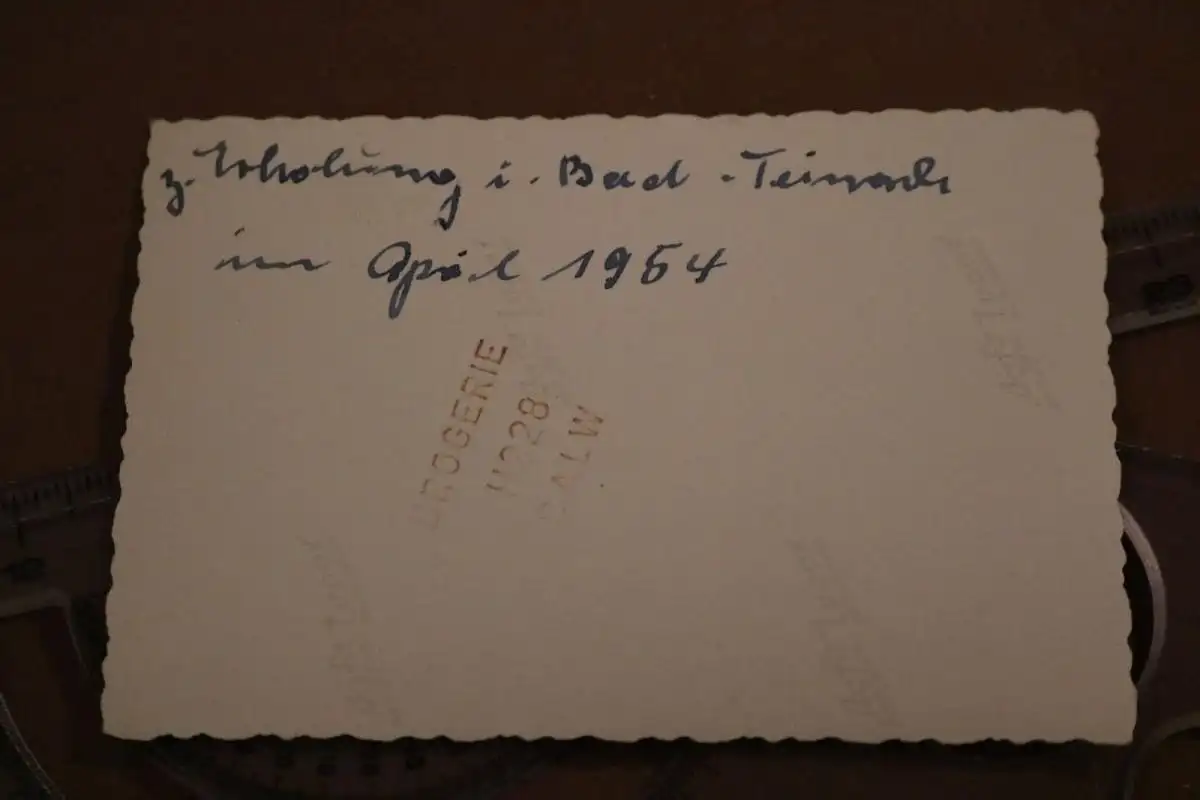 z. Erholung i. Bad-Teinach
im April 1954
DROGERIE
CALW